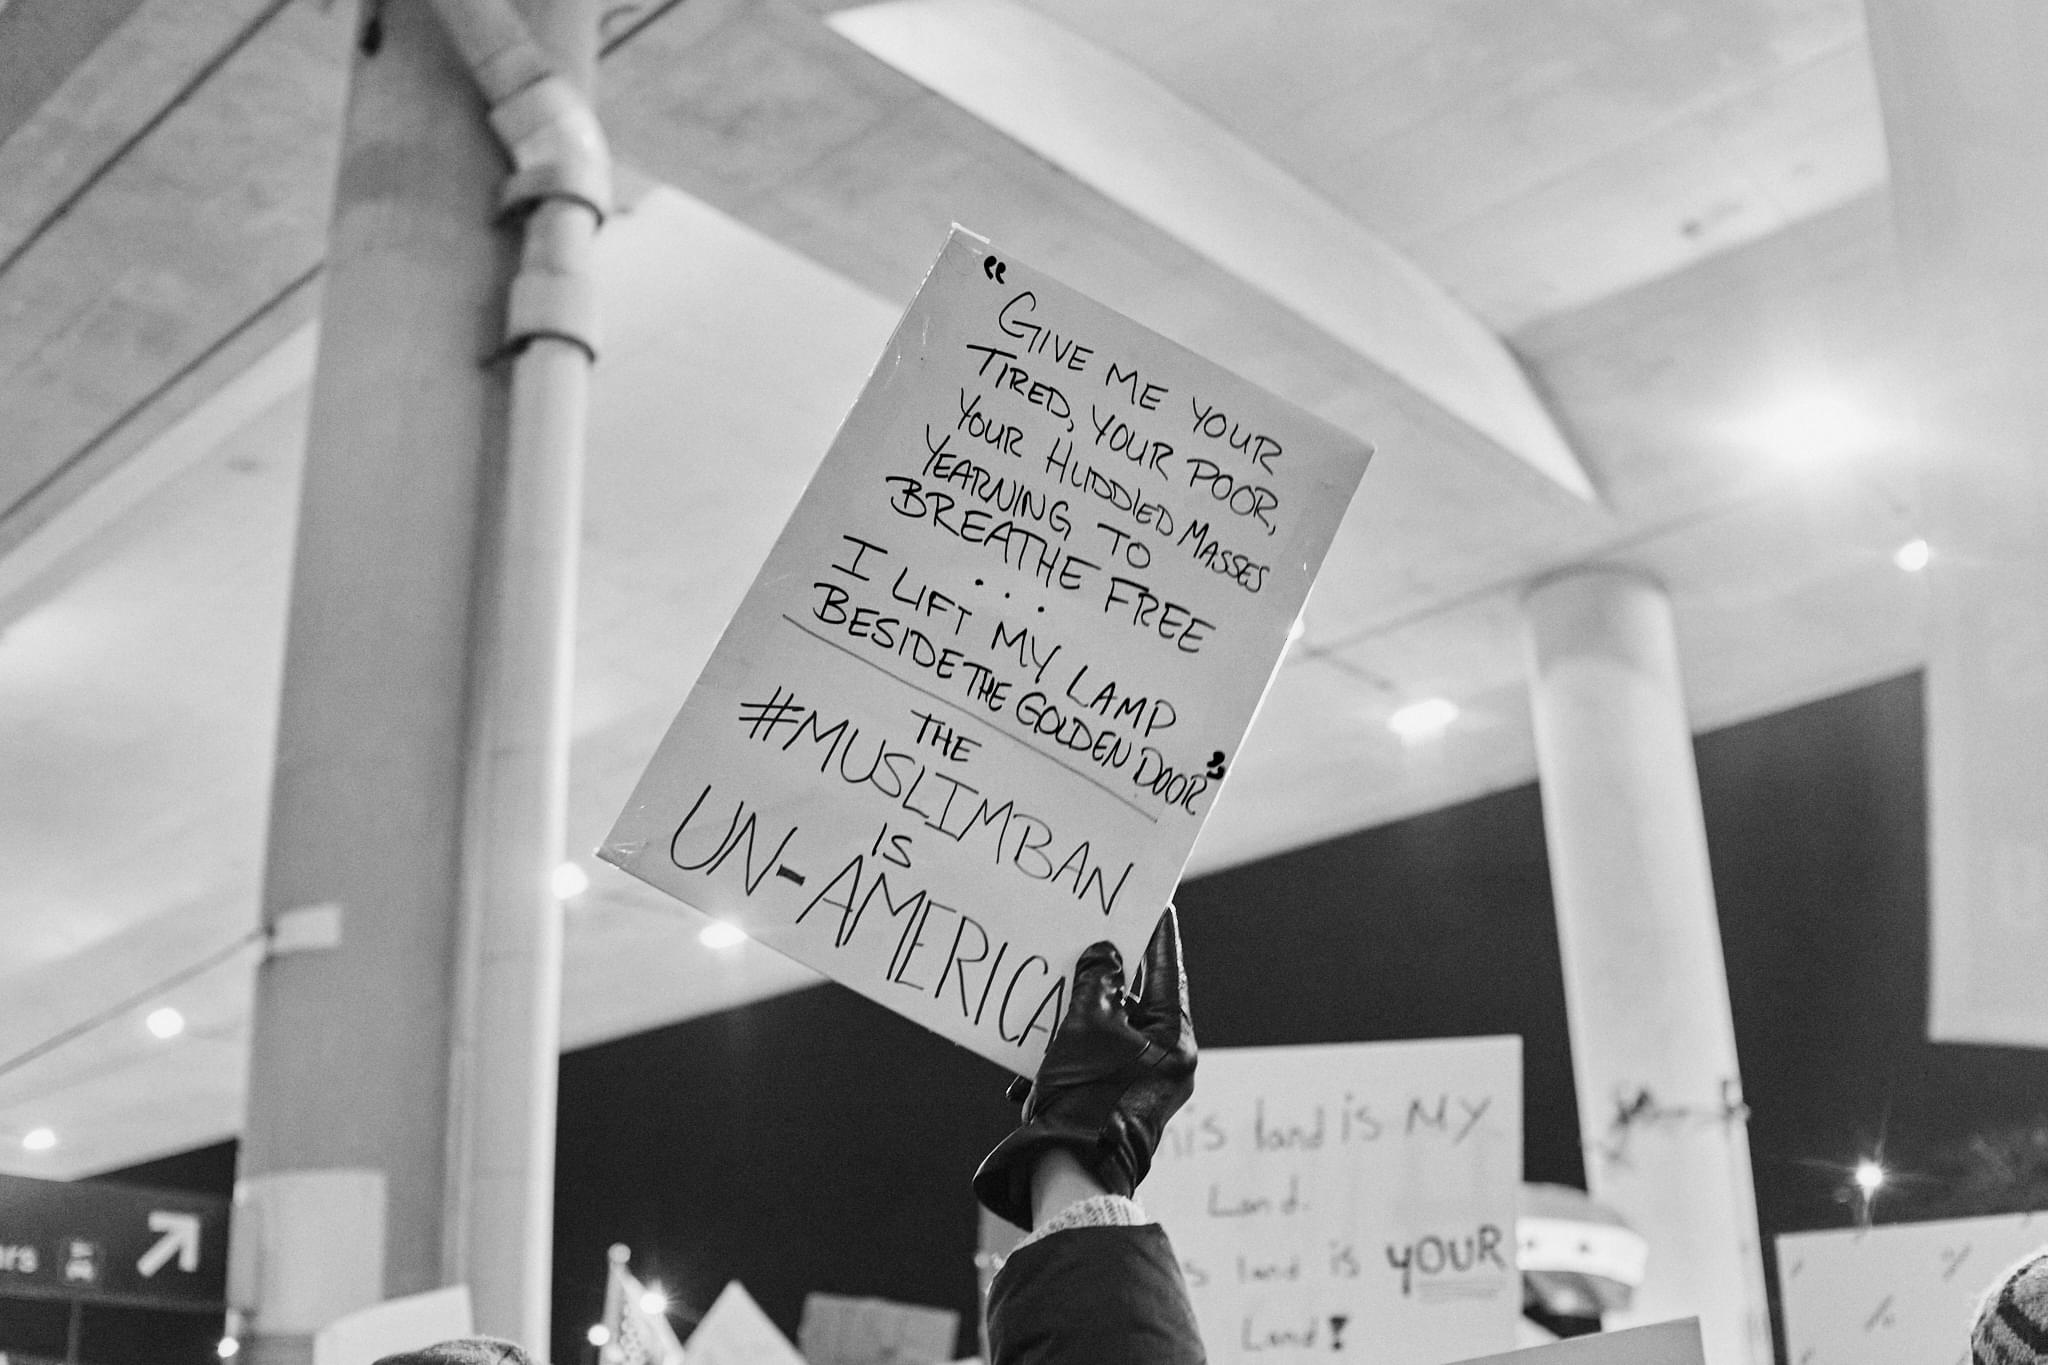 “GIVE ME YOUR
TIRED, YOUR POOR,
YOUR HUDDLED MASSES
YEARNING TO
BREATHE FREE
...
I LIFT MY LAMP
BESIDE THE GOLDEN DOOR”
THE
#MUSLIMBAN
IS
UN-AMERICA
is land is MY
Land.
land is YOUR
Land!